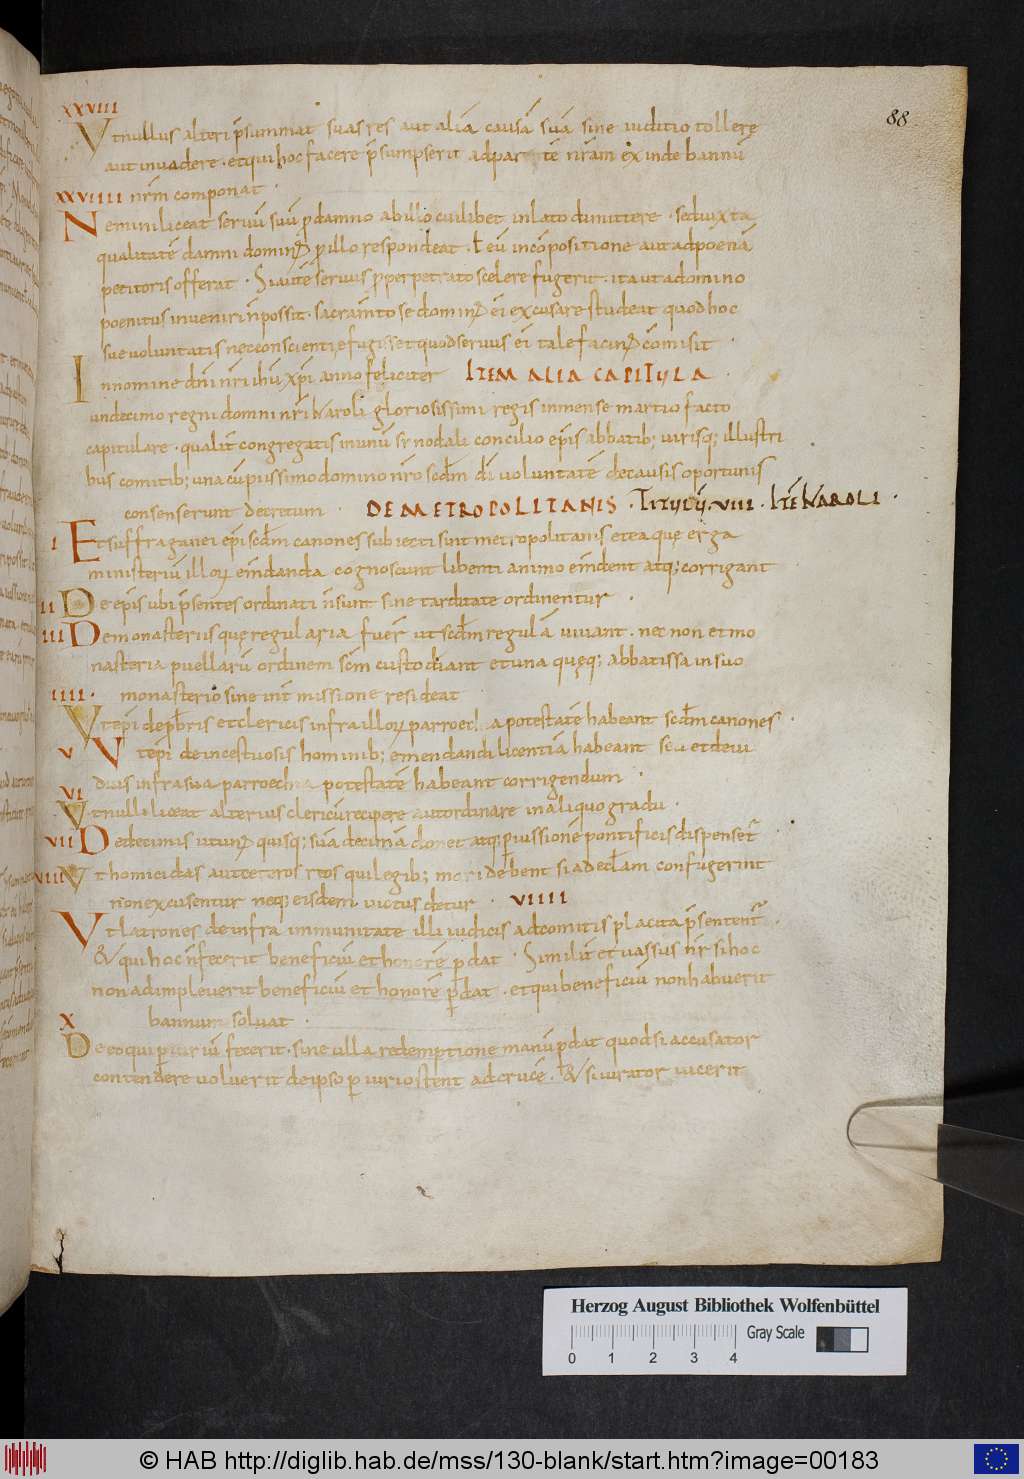 88
XXVIII
Vt nullus alteri p̄summat suas res aut aliā causā suā sine iuditio tollere
aut invadere · et qui hoc facere p̄sumpserit ad partē nr̄am exinde bannū
XXVIIII nr̄m componat ·
Nemini liceat servū suū ꝓ damno ab illo cuilibet inlato dimittere · sed iuxta
qualitatē damni domin; ꝑ illo respondeat · t eū in cōpositione aut ad poenā
petitoris offerat · Si autē servus ꝓ perpetrato scelere fugerit · ita ut a domino
poenitus inveniri n̄ possit · sacram̄to se domin; ei excusare studeat quod hoc
suę voluntatis nec conscientię fuisset quod servus ei tale facin; cōmisit ·
In nomine dn̄i nr̄i ihū xp̄i anno feliciter ITEM ALIA CAPITULA ·
undecimo regni domni nr̄i karoli gloriosissimi regis in mense martio facto
capitulare · qualit̄ congregatis in unū synodali concilio ep̄is abbatib; virisq; illustri
bus comitib; una cū piissimo domino nr̄o scdm̄ di voluntatē de causis oportunis
consenserunt decretum · DE METROPOLITANIS · TITULŪ · VIII · ITĒ KAROLI ·
I Et suffraganei ep̄i scdm̄ canones subiecti sint metropolitanis et ea quę erga
ministeriū illoꝝ em̄danda cognoscunt libenti animo em̄dent atq; corrigant
II De ep̄is ubi p̄sentes ordinati n̄ sunt sine tarditate ordinentur ·
III De monasteriis quę regularia fuer̄ ut scdm̄ regulā vivant · nec non et mo
nasteria puellarū ordinem scm̄ custodiant et una quęq; abbatissa in suo
IIII · monasterio sine int̄missione resideat
Vt ep̄i de p̄bris et clericis infra illoꝝ parroechia potestatē habeant scdm̄ canones ·
V Vt ep̄i de incestuosis hominib; emendandi licentiā habeant seu et de vi
duis infra sua parroechia potestatē habeant corrigendum ·
VI
Vt nulli liceat alterius clericū recipere aut ordinare in aliquo gradu ·
VII De decimis ut un; quisq; suā decimā donet atq; ꝑ iussionē pontificis dispenset̄
VIII Vt homicidas aut ceteros r̄ros qui legib; mori debent si ad ecl̄am confugerint
non excusentur neq; eis dem victus detur · VIIII
Vt latrones de infra immunitate illi iudicis ad comitis placita p̄sentent̄ ·
& qui hoc n̄ fecerit beneficiū et honorē ꝑdat · Similit̄ et vassus nr̄ si hoc
non adimpleverit beneficiū et honorē ꝑdat · et qui beneficiū non habuerit
bannum solvat ·
X
De eo qui ꝑiuriū fecerit · sine ulla redemptione manū ꝑdat quod si accusator
contendere voluerit de ipso ꝑiurio stent ad crucē · & si iurator vicerit
Herzog August Bibliothek Wolfenbüttel
Gray Scale
0 1 2 3 4
© HAB http://diglib.hab.de/mss/130-blank/start.htm?image=00183